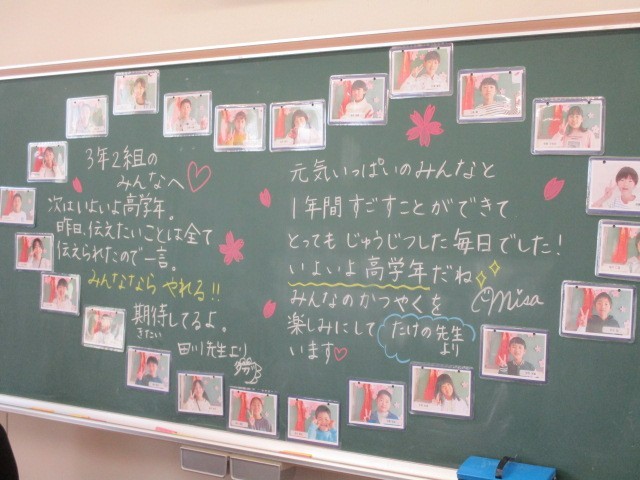 3年2組の
みんなへ
次はいよいよ高学年。
昨日、伝えたいことは全て
伝えられたので一言。
みんなならやれる!!
期待してるよ。
きたい
田川先生より
元気いっぱいのみんなと
1年間すごすことができて
とってもじゅうじつした毎日でした!
いよいよ高学年だね
みんなのかつやくを
楽しみにして
います
たけの先生
より
Misa